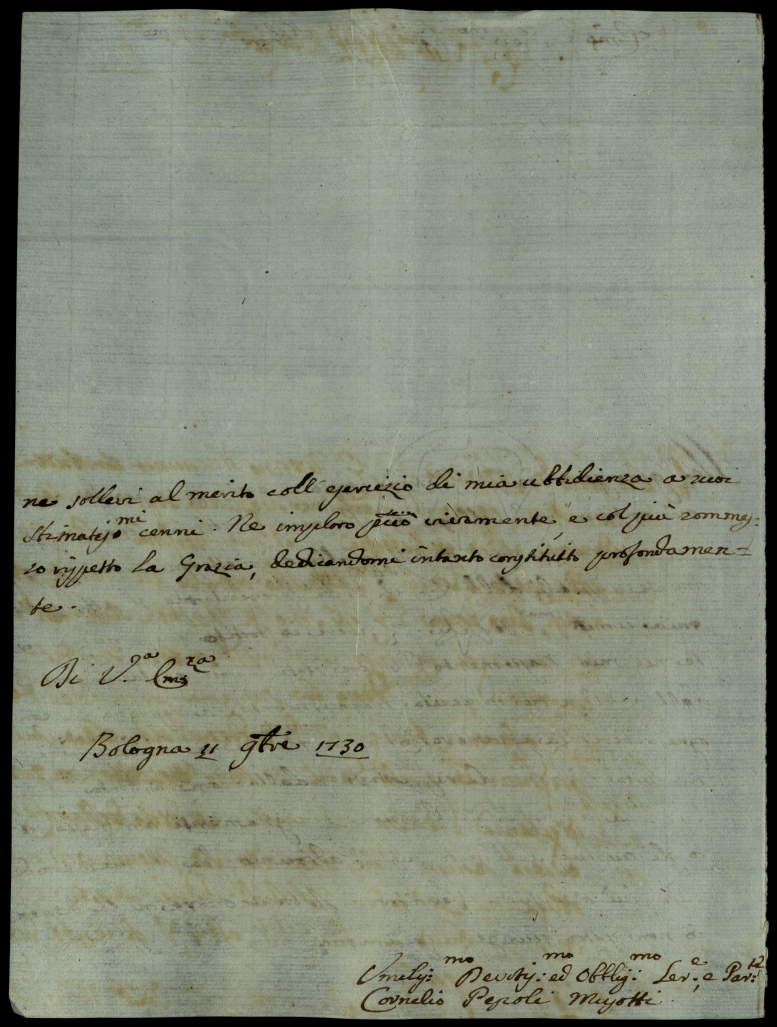 ne sollevi al merito coll'esercizio di mia ubbidienza a suoi
stimatiss:mi cenni. Ne imploro perciò vivamente, e col più sommes-
so rispetto la Grazia, dedicandomi intanto constituito profondamen-
te.
Di V.a Em.za
Bologna 11 9bre 1730
Umiliss:mo Devotiss:mo ed Obblig:mo Ser:e, e Par:
Cornelio Pepoli Musotti